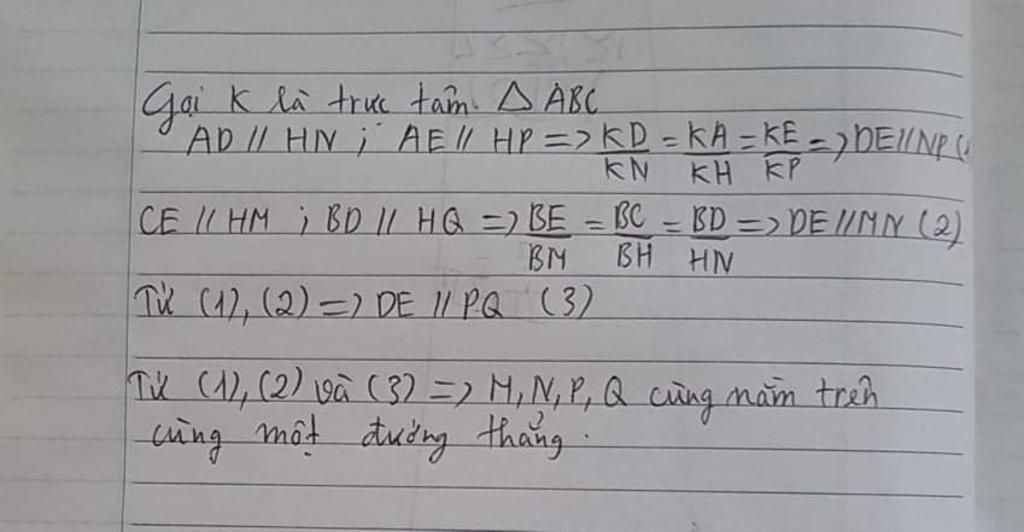 Gọi K là trực tâm △ ABC
AD // HN ; AE // HP => KD/KN = KA/KH = KE/KP => DE//NP (1
CE // HM ; BD // HQ => BE/BM = BC/BH = BD/HN => DE//MN (2)
Từ (1), (2) => DE // PQ (3)
Từ (1), (2) và (3) => M, N, P, Q cùng nằm trên
cùng một đường thẳng.